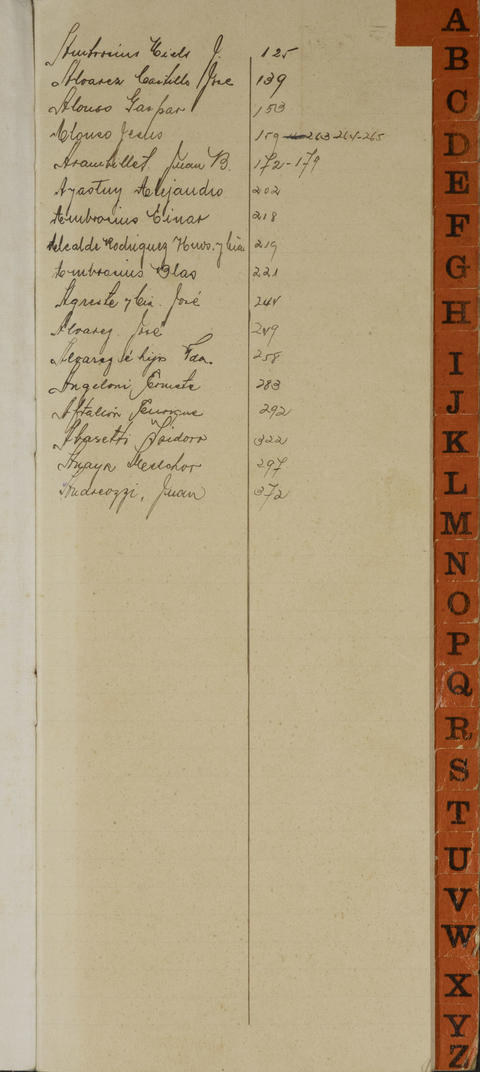 Ambrosius Niels J. 125
Alvarez Castillo José 139
Alonso Gaspar 153
Alonso Jesus 159 263-264-265
Arambillet Juan B. 172-179
Ayastuy Alejandro 202
Ambrosius Einar 218
Alcalde Rodriguez Hnos. y Cia 219
Ambrosius Blas 221
Agreste y Cia. José 244
Alvarez José 249
Alvarez é hijo Fco. 258
Angeloni Ernesto 283
Aftalión Enrique 292
Abasetti Isidoro 322
Anaya Melchor 297
Andreozzi, Juan 372
A
B
C
D
E
F
G
H
I
J
K
L
M
N
O
P
Q
R
S
T
U
V
W
X
Y
Z